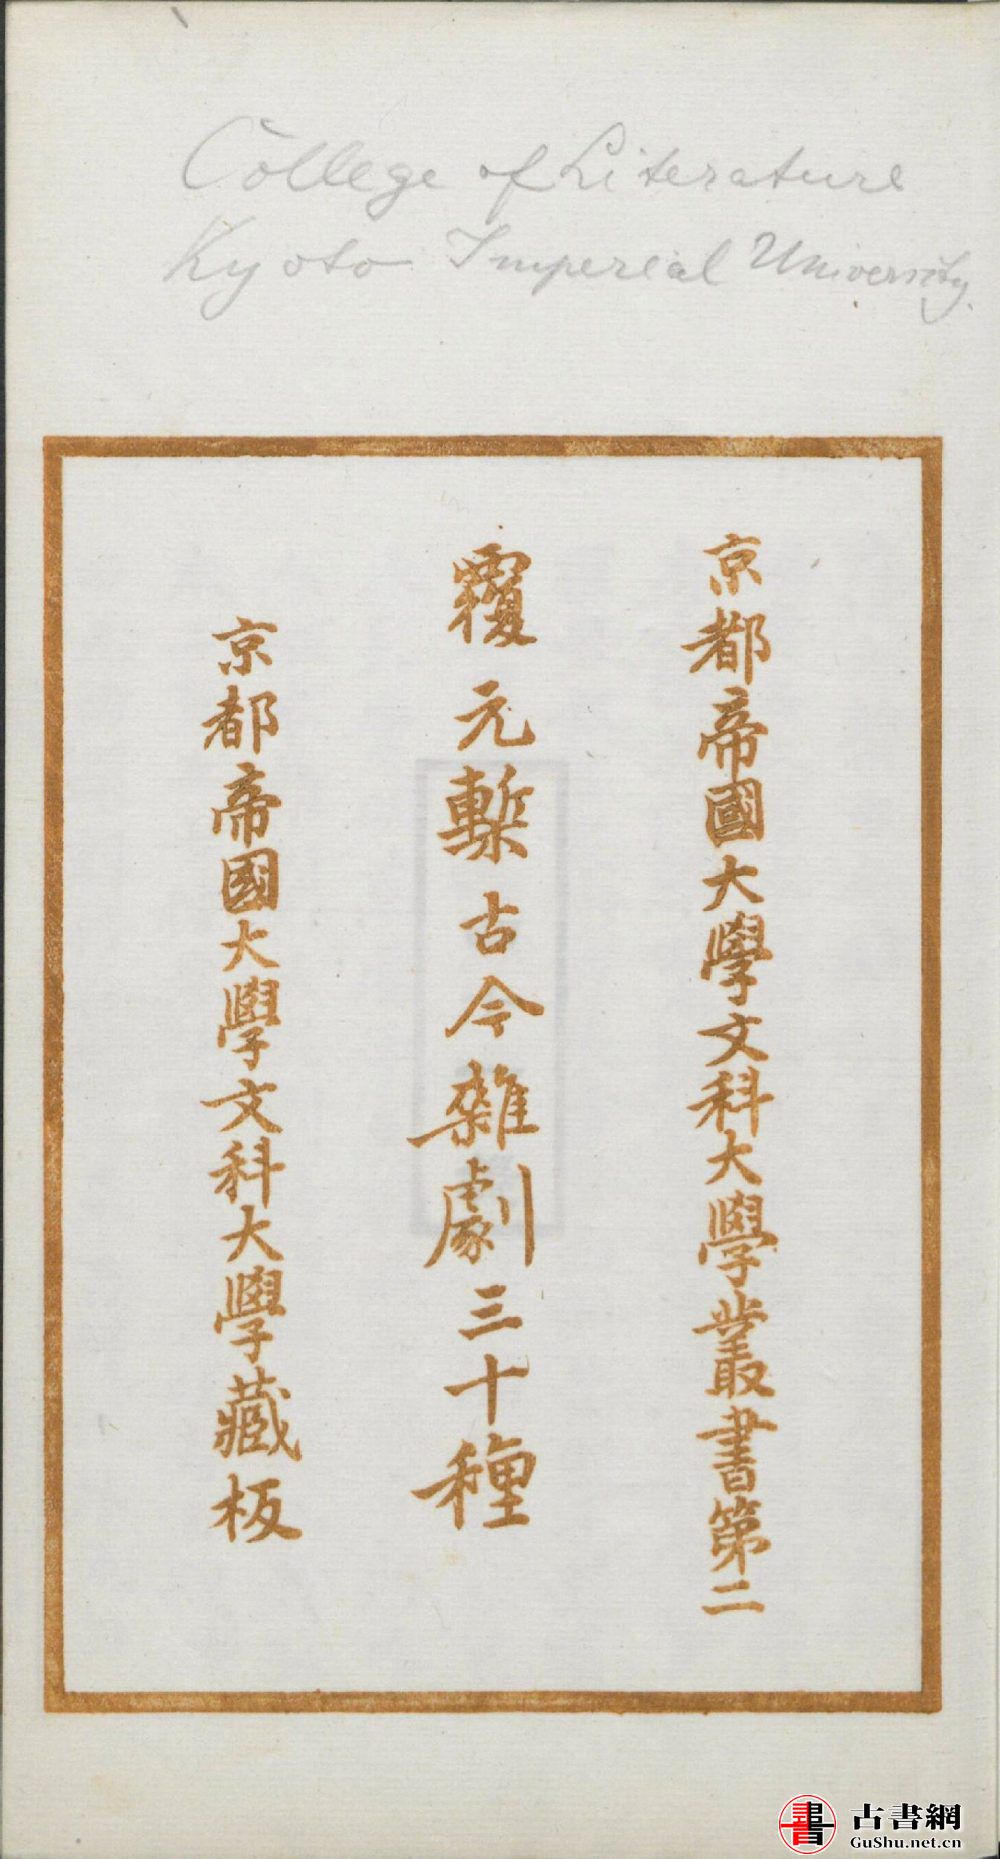 College of Literature
Kyoto Imperial University.
京都帝國大學文科大學叢書第二
覆元槧古今雜劇三十種
京都帝國大學文科大學藏板
古書網
GuShu.net.cn